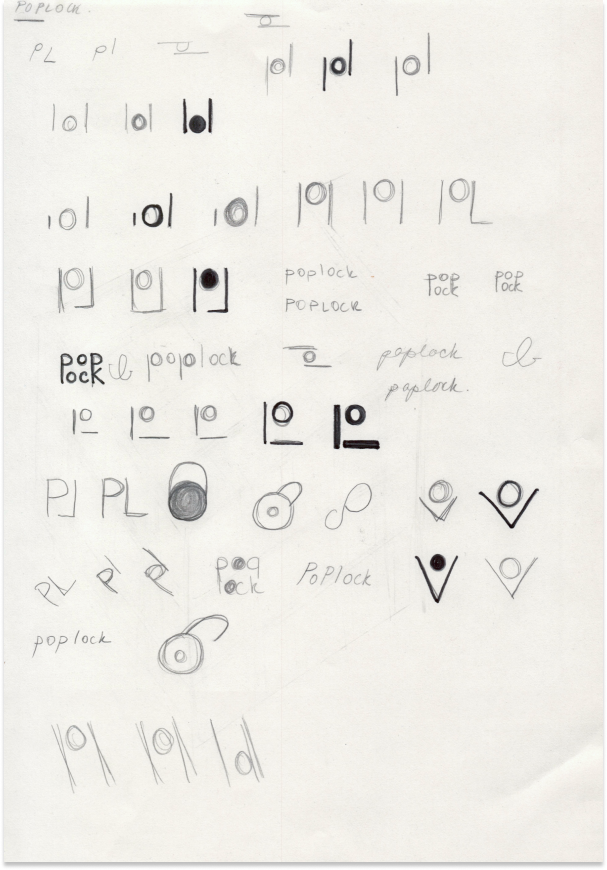 POPLOCK.
PL pl
poplock.
POPLOCK
POP
lock
POP
lock
POP
lock
poplock
poplock
poplock.
PL
PL
PL
pop
lock
PoPlock
poplock